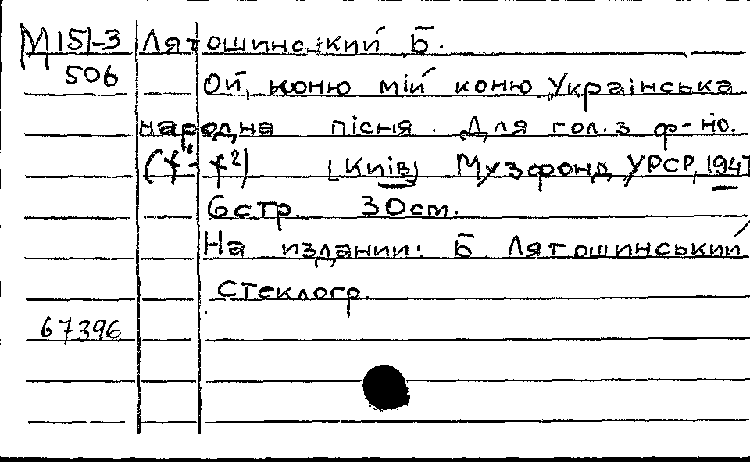 М 151-3 Лятошинський Б.
506 Ой, коню мій коню Українська
народна пісня. Для гол. з ф-но.
(f¹- f²) [Київ] Музфонд УРСР, 1947
6 стр 30 cm.
На издании: Б. Лятошинський
Стеклогр.
67396